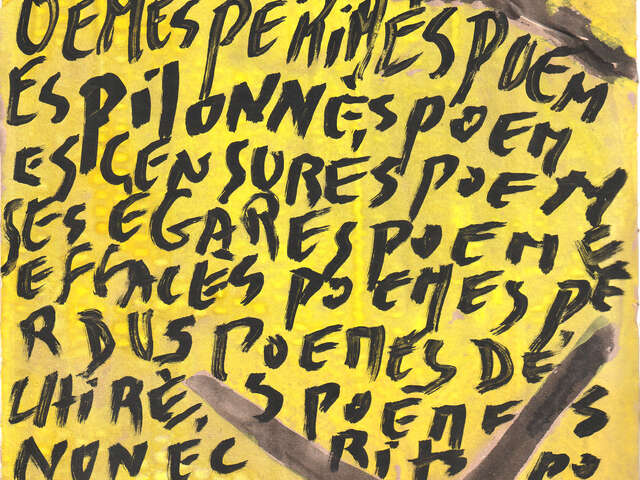 OEMES PERIMES POEM
ES PILONNÉS POEM
ES CENSURÉS POEM
SES ÉGARES POEM E
EFFACÈS POEMES PE
R DUS POEMES DÉ
CHIRÈ, S POÈMES
NON EC RITS PO